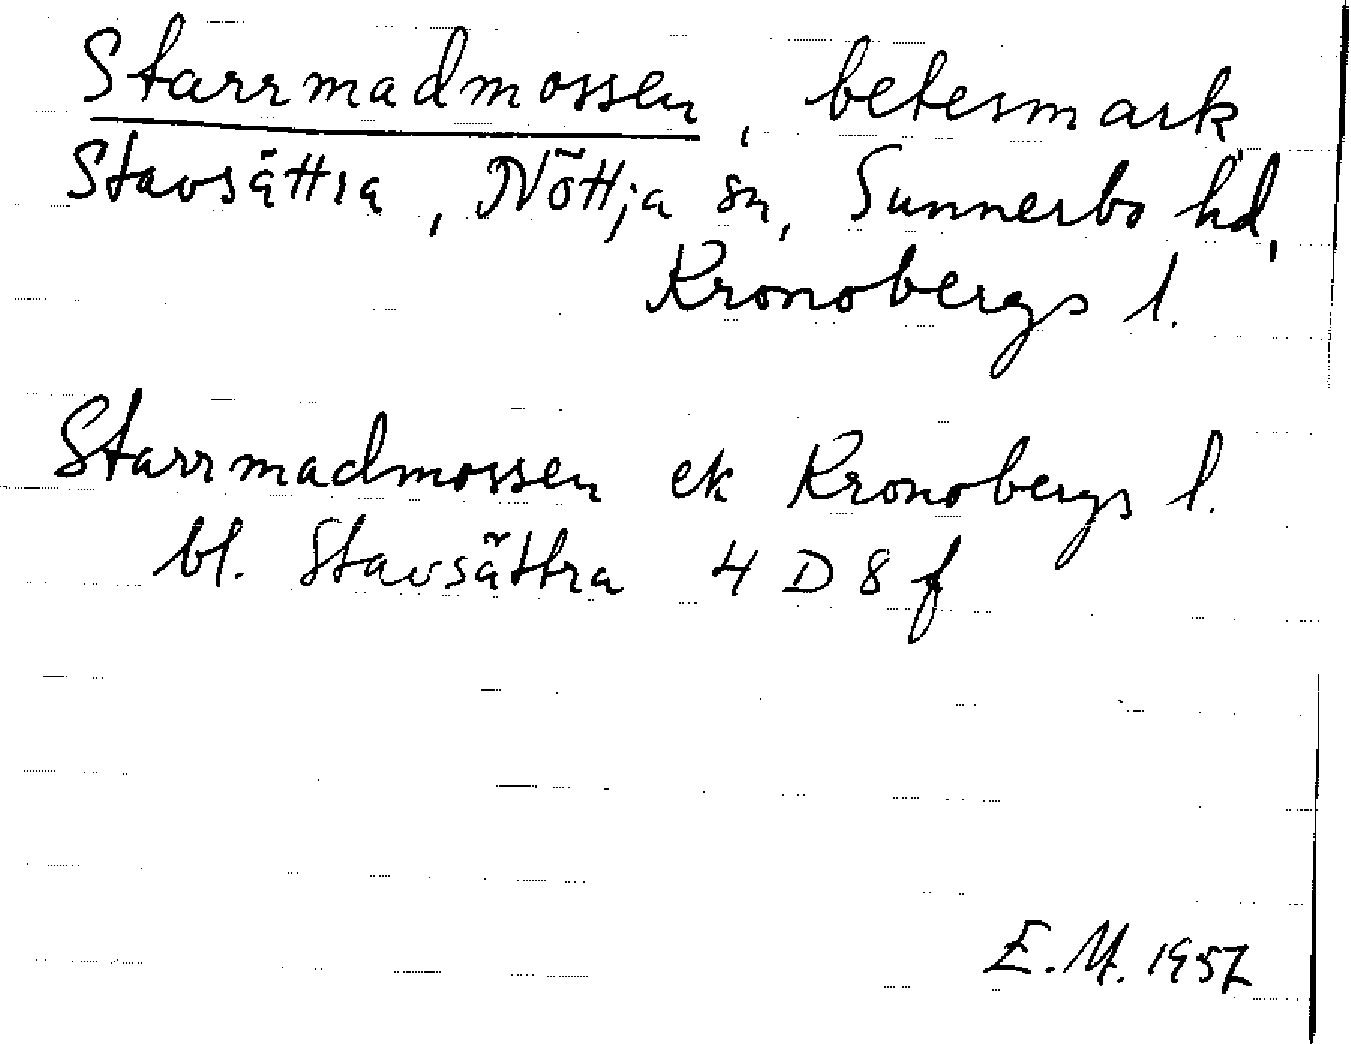 Starrmadmossen, betesmark
Stavsättra, Nöttja sn, Sunnerbo hd,
Kronobergs l.
Starrmadmossen ek Kronobergs l.
bl. Stavsättra 4 D 8 f
E.M. 1957